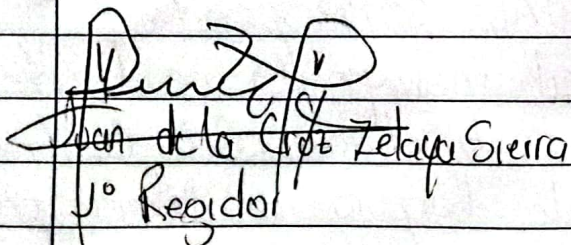 Juan de la Cruz Zelaya Sierra
1° Regidor